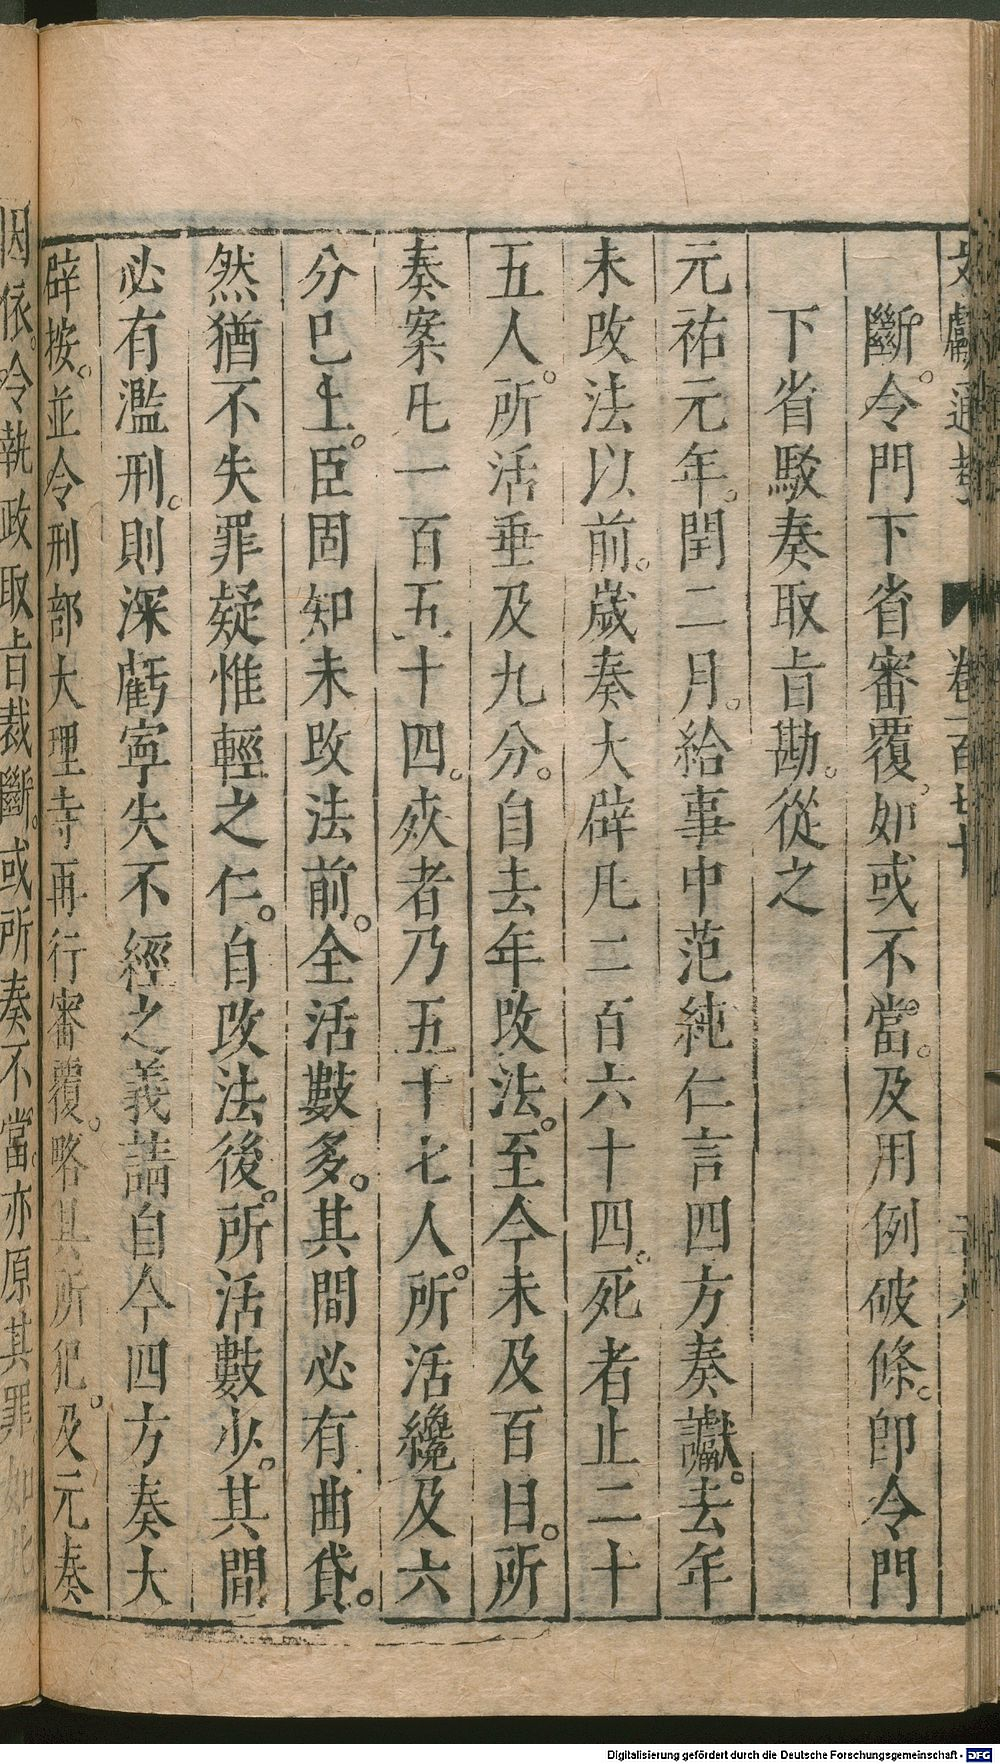 文獻通考 卷一百七十
斷。令門下省審覆。如或不當。及用例破條。卽令門
下省駁奏取㫖勘。從之
元祐元年。閏二月。給事中范純仁言四方奏讞。去年
未改法以前。歲奏大辟凡二百六十四。死者止二十
五人。所活垂及九分。自去年改法。至今未及百日。所
奏案凡一百五十四。死者乃五十七人。所活纔及六
分巳上。臣固知未改法前。全活數多。其間必有曲貸。
然猶不失罪疑惟輕之仁。自改法後。所活數少。其間
必有濫刑。則深虧寧失不經之義請自今四方奏大
辟按。並令刑部大理寺再行審覆。略具所犯。及元奏
因依。令執政取㫖裁斷。或所奏不當。亦原其罪 如此
Digitalisierung gefördert durch die Deutsche Forschungsgemeinschaft - DFG